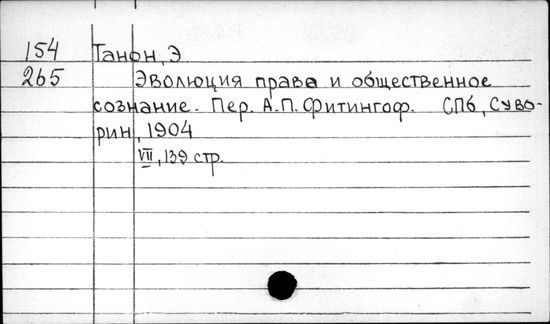 154 Танон, Э.
265 Эволюция права и общественное
сознание. Пер. А.П. Фитингоф. СПб, Суво-
рин, 1904
VII, 139 стр.